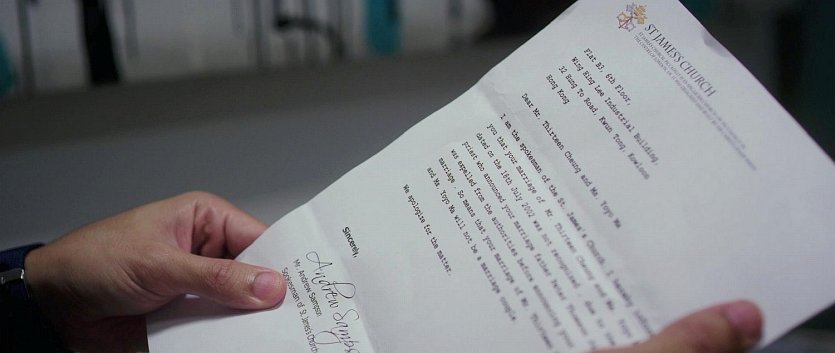 ST JAMES'S CHURCH
Flat B3, 6th Floor,
Wing Hing Lee Industrial Building,
32 Hung To Road, Kwun Tong, Kowloon
Hong Kong
Dear Mr. Thirteen Cheung and Ms. Yoyo Ma
I am the spokesman of the St. James's Church, I
you that your marriage of Mr. Thirteen Cheung and Ms. Yoyo
dated on the 18th July 2002 was not recognized, due to the
priest who announced your marriage, father Peter
was expelled from the authorities before announcing your
marriage. So means that your marriage of Mr. Thirteen
and Ms. Yoyo Ma will not be a marriage couple.
We apologize for the matter.
Sincerely,
Andrew Samps
Mr. Andrew Sampson
Spokesman of St. James's Church